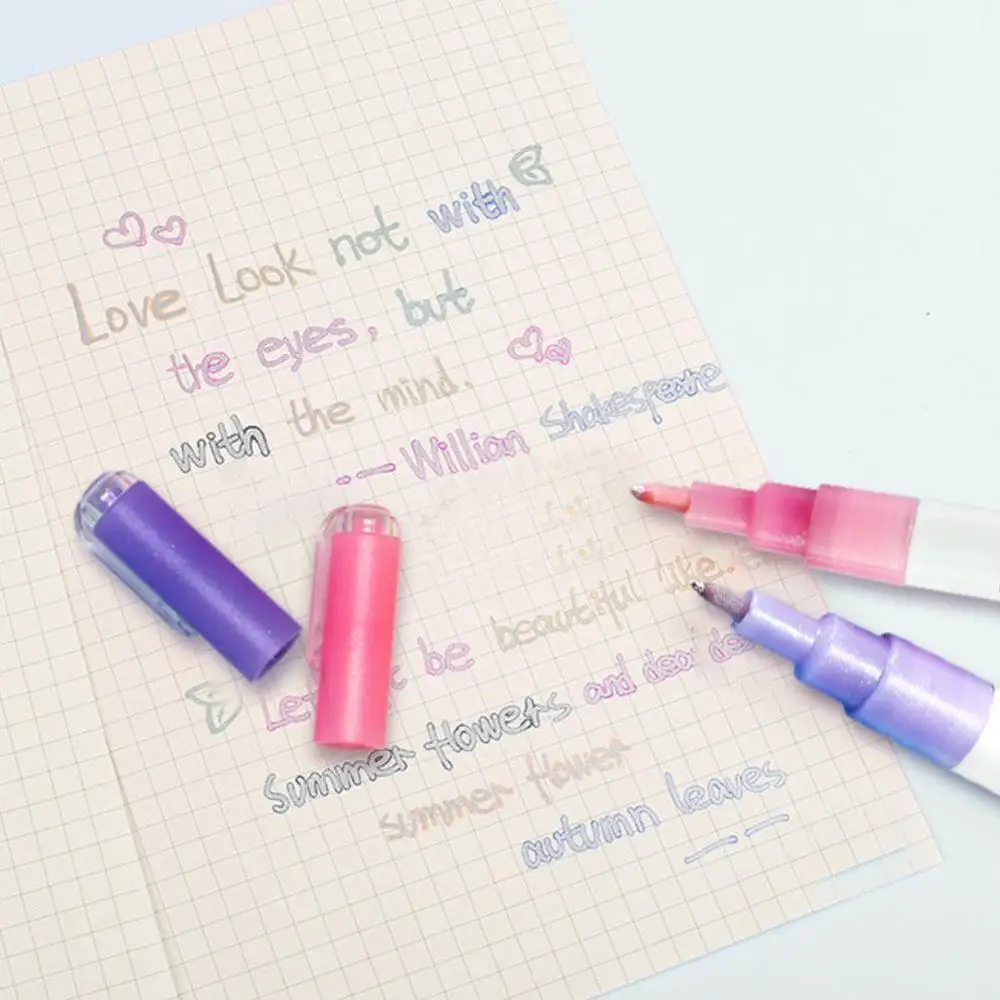 Love Look not with
the eyes, but
with the mind.
.-—Willian Shakespeare
be beautiful like
Summer flowers and
summer flower
autumn leaves